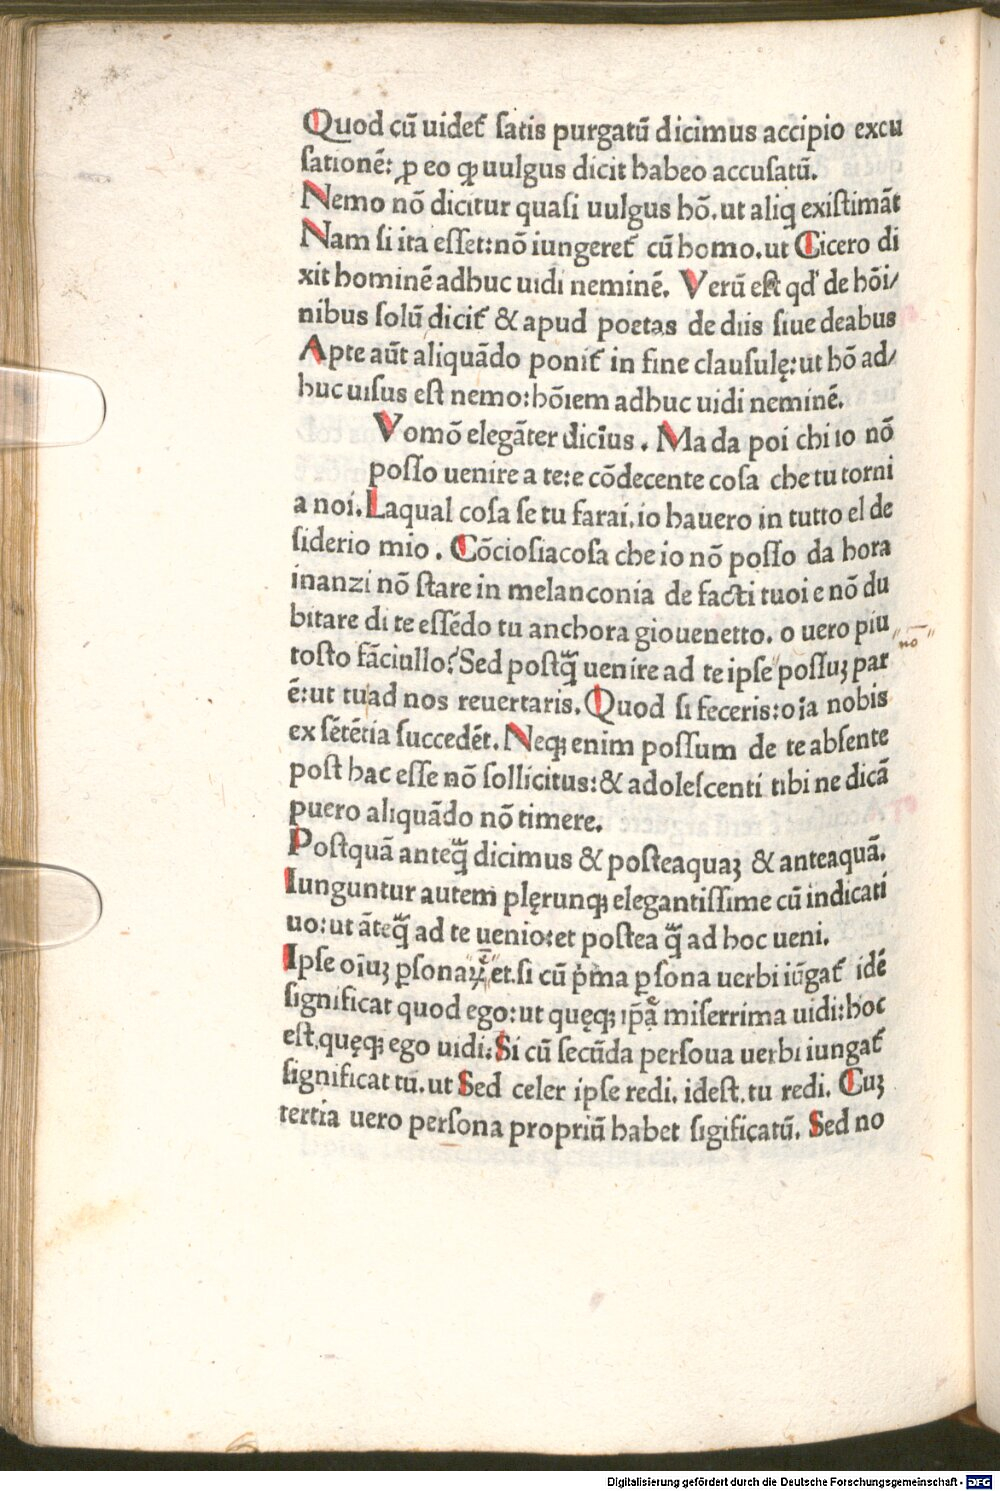 Quod cū uidet᷑ satis purgatū dicimus accipio excu
sationē: ꝓ eo ꝙ uulgus dicit habeo accusatū.
Nemo nō dicitur quasi uulgus hō. ut aliq existimāt
Nam si ita esset: nō iungeret᷑ cū homo. ut Cicero di
xit hominē adhuc uidi neminē. Verū est qd' de hōi/
nibus solū dicit᷑ & apud poetas de diis siue deabus
Apte aūt aliquādo ponit᷑ in fine clausulę: ut hō ad/
huc uisus est nemo: hōiem adhuc uidi neminē.
Vomō elegāter dicius. Ma da poi chi io nō
posso uenire a te: e cōdecente cosa che tu torni
a noi. Laqual cosa se tu farai. io hauero in tutto el de
siderio mio. Cōciosiacosa che io nō posso da hora
inanzi nō stare in melanconia de facti tuoi e nō du
bitare di te essēdo tu anchora giouenetto. o uero piu
tosto fāciullo? Sed postq̄ uenire ad te ipse possuꝫ par
nō
ē: ut tu ad nos reuertaris. Quod si feceris: oīa nobis
ex sētētia succedēt. Neqꝫ enim possum de te absente
post hac esse nō sollicitus: & adolescenti tibi ne dicā
puero aliquādo nō timere.
Postquā anteq̄ dicimus & posteaquaꝫ & anteaquā.
Iunguntur autem plęrunqꝫ elegantissime cū indicati
uo: ut āteq̄ ad te uenio: et postea q̄ ad hoc ueni.
Ipse oīuꝫ ꝑsonaꝝ ē et. si cū p̄ma ꝑsona uerbi iūgat᷑ idē
significat quod ego: ut quęqꝫ ip̄a miserrima uidi: hoc
est. quęqꝫ ego uidi. Si cū secūda persoua uerbi iungat᷑
significat tu. ut Sed celer ipse redi. idest. tu redi. Cuꝫ
tertia uero persona propriū habet sigificatū. Sed no
Digitalisierung gefördert durch die Deutsche Forschungsgemeinschaft - DFG